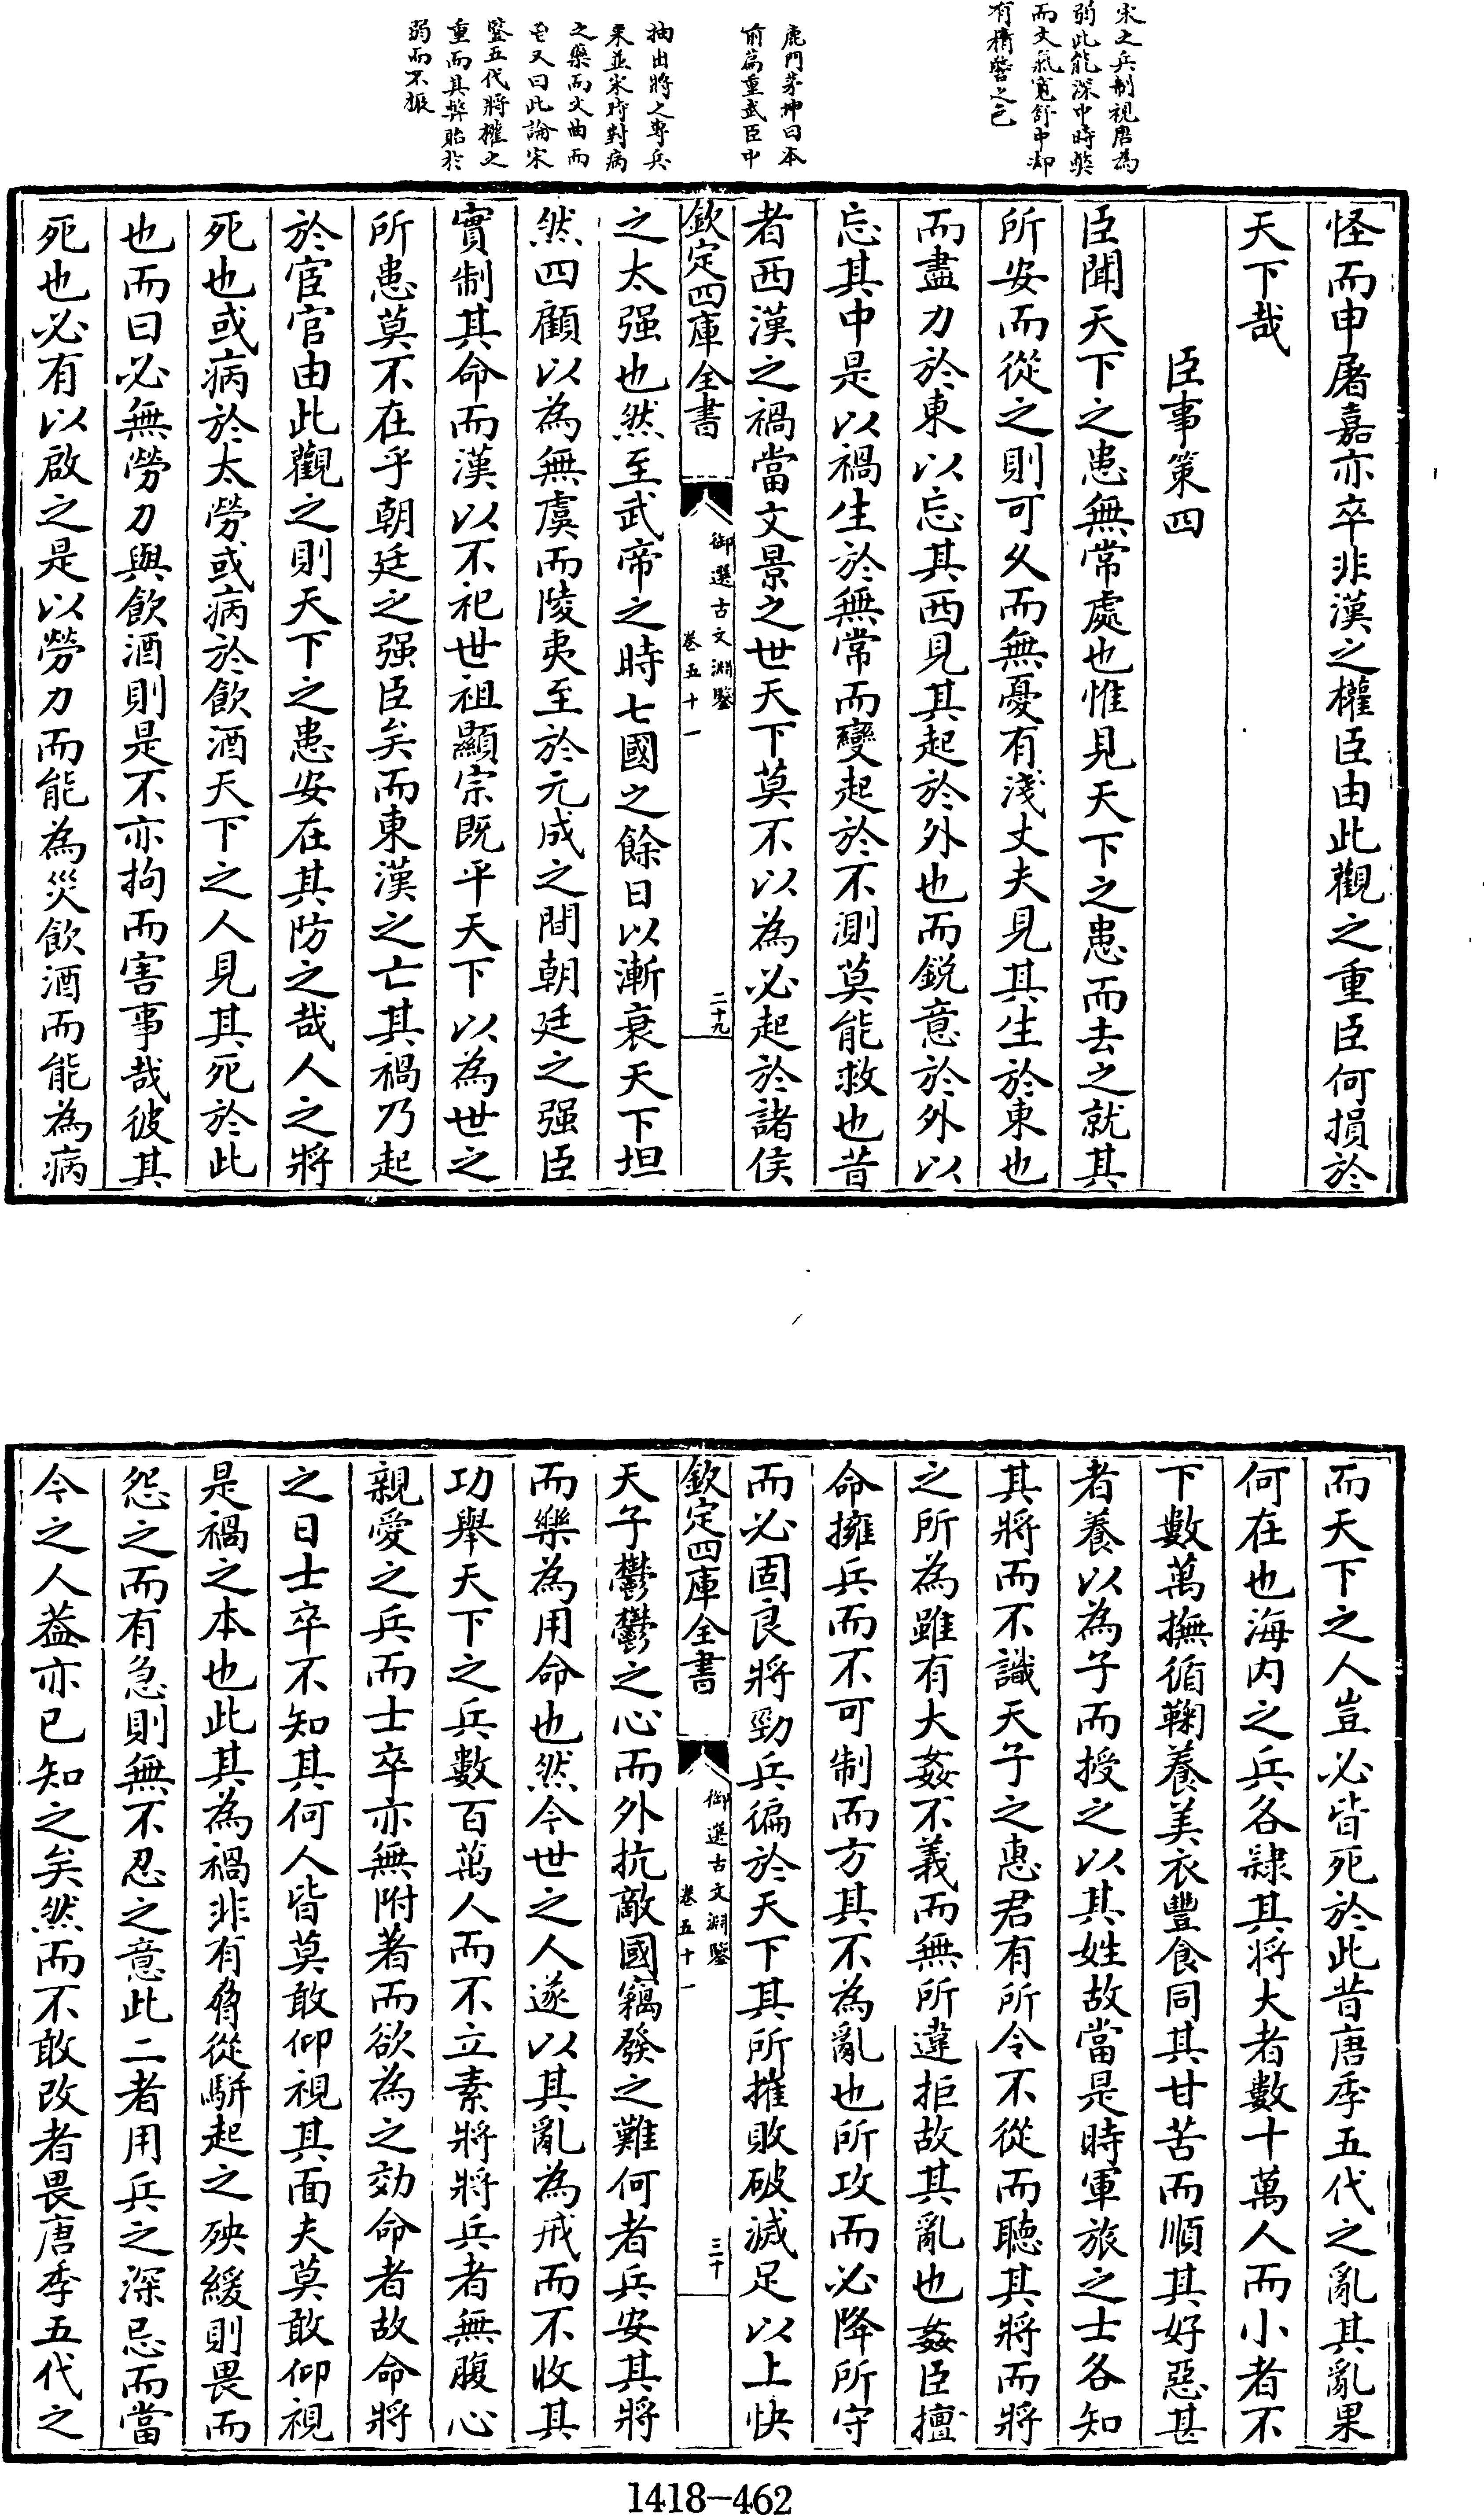 宋之兵制視唐為
弱此能深中時弊
而文氣寛舒中却
有精警之色
鹿門茅坤曰本
前篇重武臣中
抽出將之專兵
來並宋時對病
之藥而文曲而
鬯又曰此論宋
鑒五代將權之
重而其弊貽於
弱而不振
怪而申屠嘉亦卒非漢之權臣由此觀之重臣何損於
天下哉
臣事策四
臣聞天下之患無常處也惟見天下之患而去之就其
所安而從之則可久而無憂有淺丈夫見其生於東也
而盡力於東以忘其西見其起於外也而鋭意於外以
忘其中是以禍生於無常而變起於不測莫能救也昔
者西漢之禍當文景之世天下莫不以為必起於諸侯
欽定四庫全書
御選古文淵鑒
卷五十一
二十九
之太强也然至武帝之時七國之餘日以漸衰天下坦
然四顧以為無虞而陵夷至於元成之間朝廷之强臣
實制其命而漢以不祀世祖顯宗既平天下以為世之
所患莫不在乎朝廷之强臣矣而東漢之亡其禍乃起
於宦官由此觀之則天下之患安在其防之哉人之將
死也或病於太勞或病於飲酒天下之人見其死於此
也而曰必無勞力與飲酒則是不亦拘而害事哉彼其
死也必有以啟之是以勞力而能為災飲酒而能為病
而天下之人豈必皆死於此昔唐季五代之亂其亂果
何在也海内之兵各隸其將大者數十萬人而小者不
下數萬撫循鞠養美衣豐食同其甘苦而順其好惡甚
者養以為子而授之以其姓故當是時軍旅之士各知
其將而不識天子之惠君有所令不從而聽其將而將
之所為雖有大姦不義而無所違拒故其亂也姦臣擅
命擁兵而不可制而方其不為亂也所攻而必降所守
而必固良將勁兵徧於天下其所摧敗破滅足以上快
欽定四庫全書
御選古文淵鑒
卷五十一
三十
天子鬱鬱之心而外抗敵國竊發之難何者兵安其將
而樂為用命也然今世之人遂以其亂為戒而不收其
功舉天下之兵數百萬人而不立素將將兵者無腹心
親愛之兵而士卒亦無附著而欲為之効命者故命將
之日士卒不知其何人皆莫敢仰視其面夫莫敢仰視
是禍之本也此其為禍非有脅從駢起之殃緩則畏而
怨之而有急則無不忍之意此二者用兵之深忌而當
今之人葢亦已知之矣然而不敢改者畏唐季五代之
1418-462